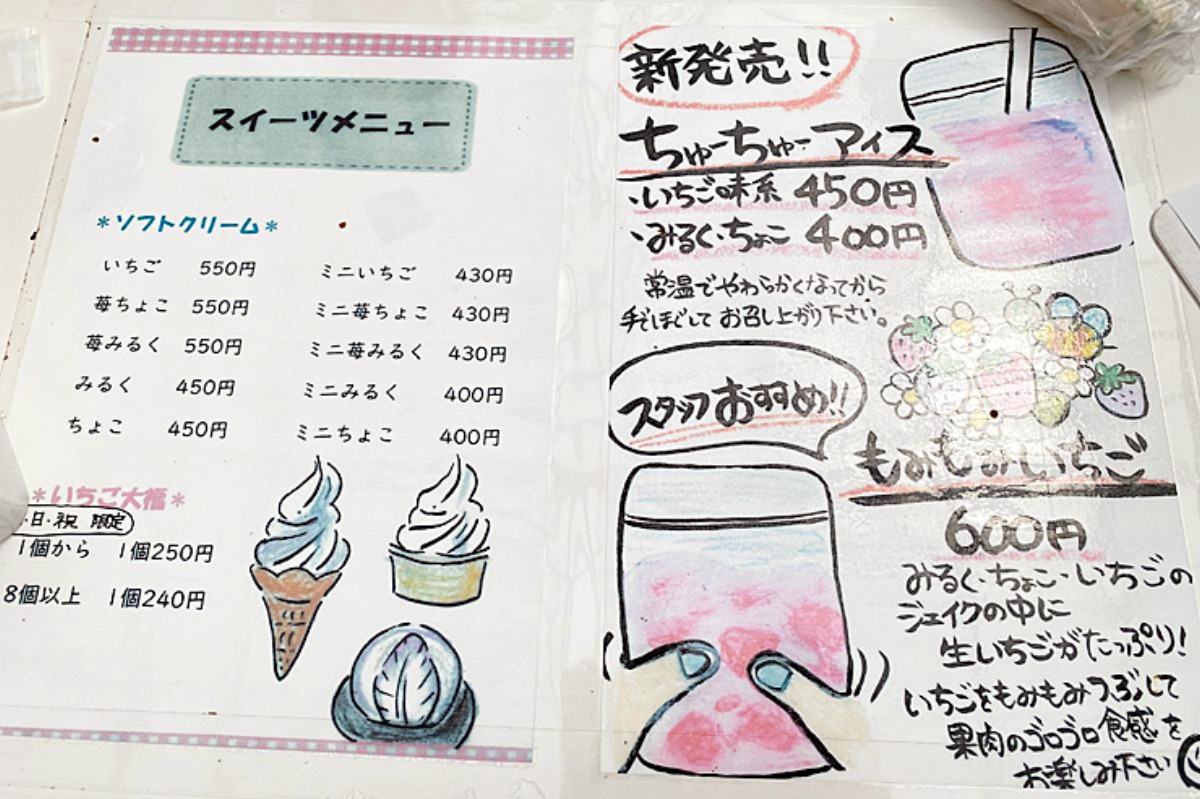 スイーツメニュー
*ソフトクリーム*
いちご 550円 ミニいちご 430円
苺ちょこ 550円 ミニ苺ちょこ 430円
苺みるく 550円 ミニ苺みるく 430円
みるく 450円 ミニみるく 400円
ちょこ 450円 ミニちょこ 400円
*いちご大福*
・日・祝 限定
1個から 1個250円
8個以上 1個240円
新発売!!
ちゅーちゅーアイス
・いちご味系 450円
・みるく・ちょこ 400円
常温でやわらかくなってから
手でほぐして お召し上がり下さい。
スタッフおすすめ!!
もみもみいちご
600円
みるく・ちょこ・いちごの
ジェイクの中に
生いちごがたっぷり!
いちごをもみもみつぶして
果肉のゴロゴロ食感を
お楽しみ下さい